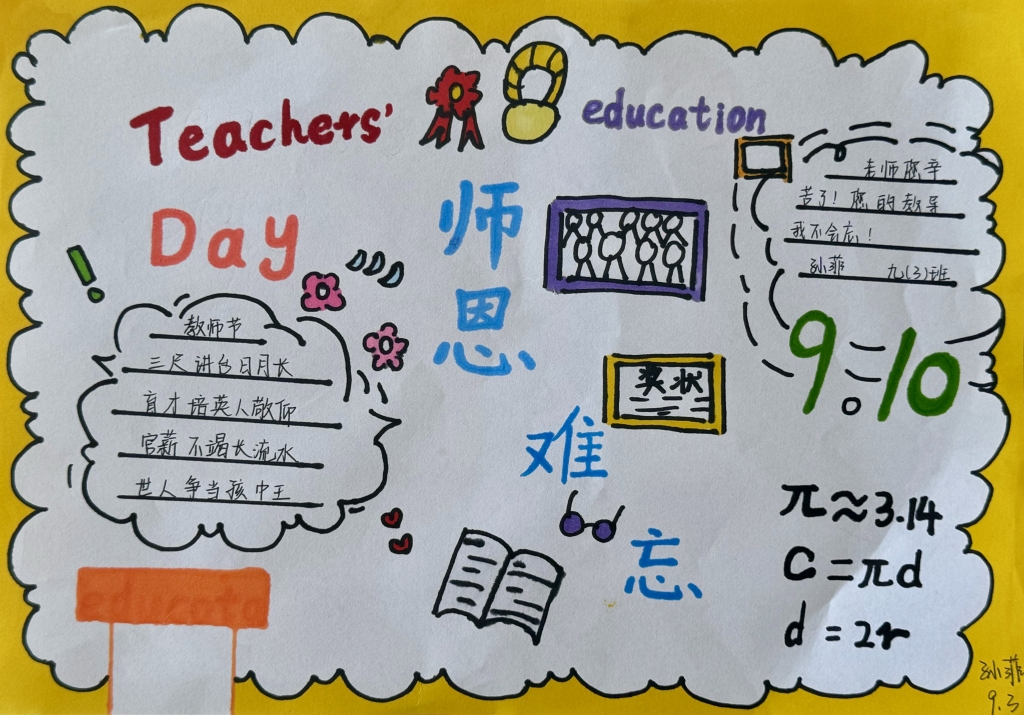 Teachers'
Day
education
师
恩
难
忘
老师您辛
苦了！您的教导
我不会忘！
孙菲 九(3)班
9.10
奖状
教师节
三尺讲台日月长
育才培英人敬仰
官薪不竭长流水
世人争当孩中王
educato
π≈3.14
C=πd
d=2r
孙菲
9.3